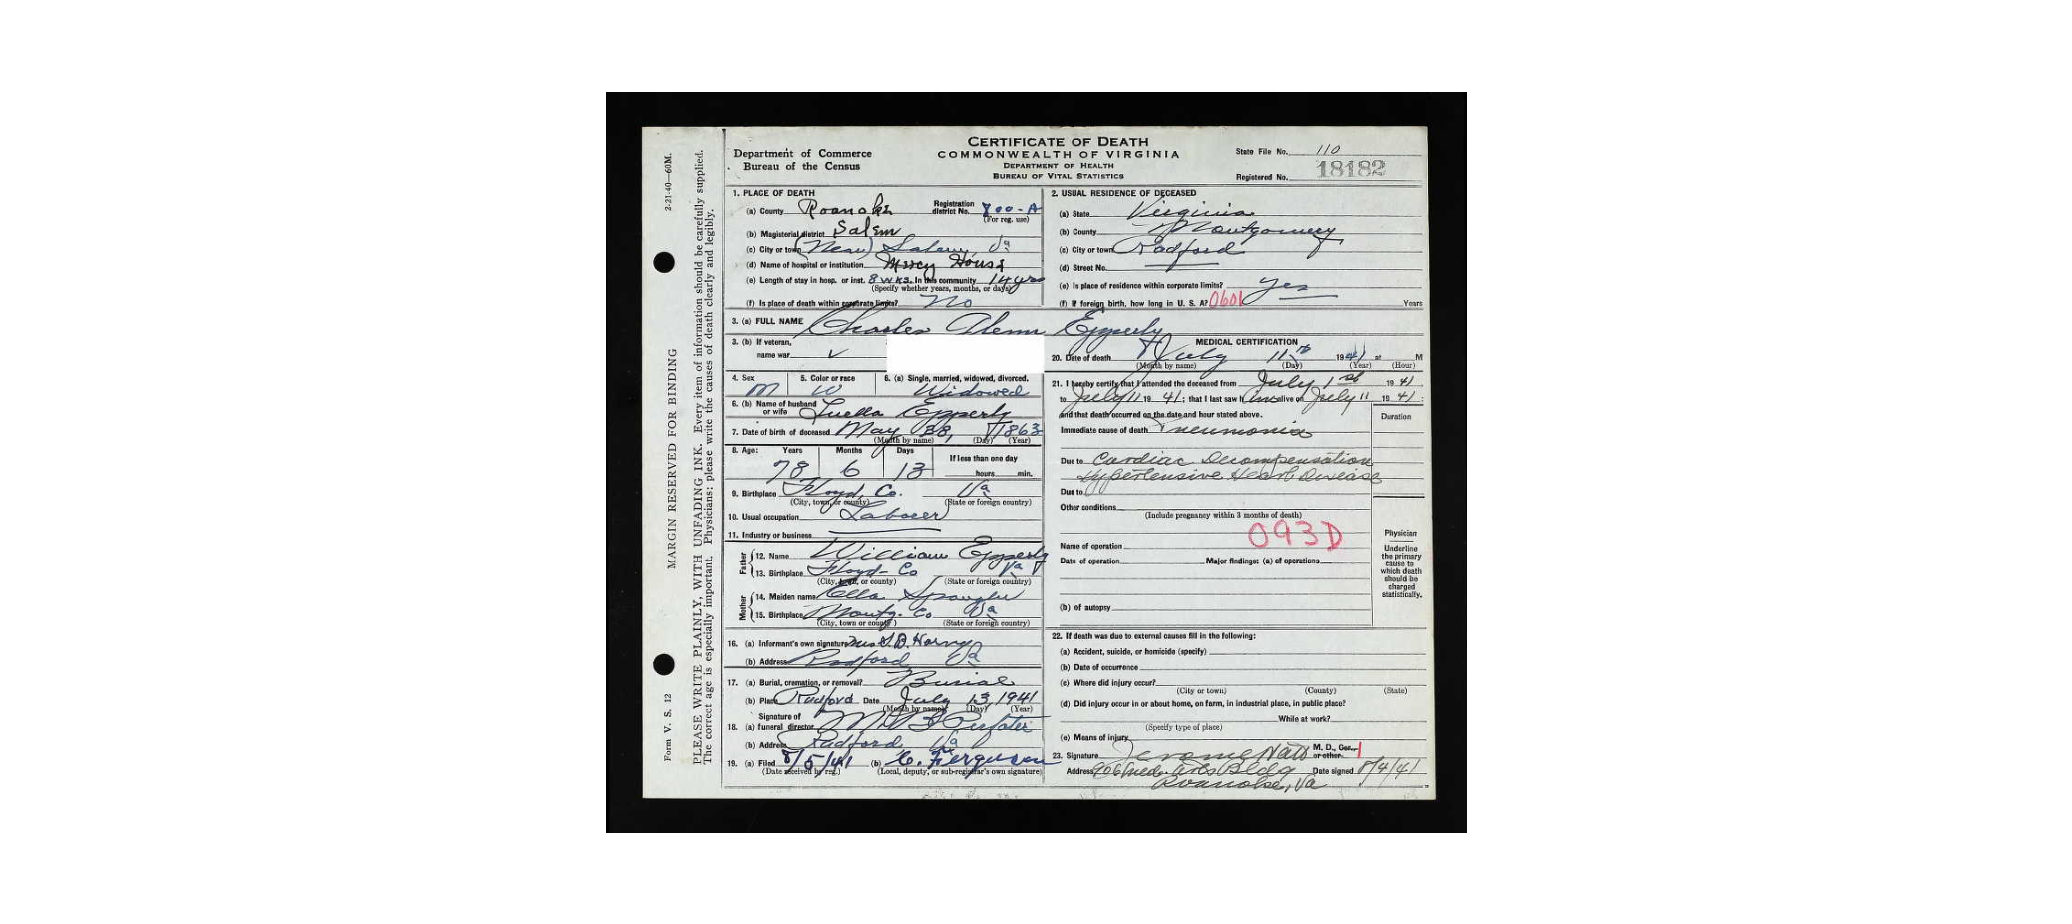 CERTIFICATE OF DEATH
COMMONWEALTH OF VIRGINIA
DEPARTMENT OF HEALTH
BUREAU OF VITAL STATISTICS
Department of Commerce
Bureau of the Census
State File No. 110
Registered No. 18182
2-21-40—60M.
MARGIN RESERVED FOR BINDING
Form V. S. 12
PLEASE WRITE PLAINLY, WITH UNFADING INK. Every item of information should be carefully supplied.
The correct age is especially important. Physicians: please write the causes of death clearly and legibly.
1. PLACE OF DEATH
(a) County Roanoke Registration district No. 800-A
(For reg. use)
(b) Magisterial district Salem
(c) City or town (Near) Salem, Va
(d) Name of hospital or institution Mercy House
(e) Length of stay in hosp. or inst. 8 wks. In this community 14 yrs
(Specify whether years, months, or days)
(f) Is place of death within corporate limits? No
2. USUAL RESIDENCE OF DECEASED
(a) State Virginia
(b) County Montgomery
(c) City or town Radford
(d) Street No.
(e) Is place of residence within corporate limits? Yes
(f) If foreign birth, how long in U. S. A? 0601 Years
3. (a) FULL NAME Charles Epperly
3. (b) If veteran,
name war
4. Sex M
5. Color or race W
6. (a) Single, married, widowed, divorced. Widowed
6. (b) Name of husband or wife Luella Epperly
7. Date of birth of deceased May 1863
(Month by name) (Day) (Year)
8. Age: Years 78 Months 6 Days 13 If less than one day
hours min.
9. Birthplace Floyd Co. Va
(City, town, or county) (State or foreign country)
10. Usual occupation Laborer
11. Industry or business
Father
12. Name William Epperly
13. Birthplace Floyd-Co Va
(City, town, or county) (State or foreign country)
Mother
14. Maiden name Ella Spangler
15. Birthplace Montg. Co Va
(City, town or county) (State or foreign country)
16. (a) Informant's own signature Mrs
(b) Address Radford Va
17. (a) Burial, cremation, or removal? Burial
(b) Place Radford Date July 13 1941
(Month by name) (Day) (Year)
Signature of
18. (a) funeral director
(b) Address Radford Va
19. (a) Filed 8/5/41 (b) C. Ferguson
(Date received by reg.) (Local, deputy, or sub-registrar's own signature)
MEDICAL CERTIFICATION
20. Date of death July 11th 1941 at M
(Month by name) (Day) (Year) (Hour)
21. I hereby certify that I attended the deceased from July 1st 1941
to July 11 1941; that I last saw him alive on July 11 1941
and that death occurred on the date and hour stated above.
Duration
Immediate cause of death Pneumonia
Due to Cardiac Decompensation
Hypertensive Heart Disease
Due to
Other conditions
(Include pregnancy within 3 months of death)
093D
Name of operation
Date of operation Major findings: (a) of operations
(b) of autopsy
Physician
Underline the primary cause to which death should be charged statistically.
22. If death was due to external causes fill in the following:
(a) Accident, suicide, or homicide (specify)
(b) Date of occurrence
(c) Where did injury occur?
(City or town) (County) (State)
(d) Did injury occur in or about home, on farm, in industrial place, in public place?
While at work?
(Specify type of place)
(e) Means of injury
23. Signature Jerome M. D., Cor., or other. 1
Address 906 Med. Arts Bldg Date signed 8/4/41
Roanoke, Va